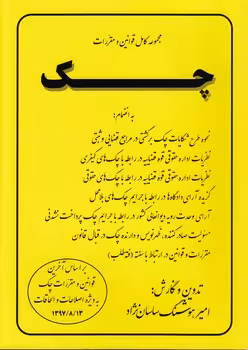 مجموعه کامل قوانین و مقررات
چک
به انضمام:
نحوه طرح شکایات چک برگشتی در مراجع قضایی و ثبتی
نظریات اداره حقوقی قوه قضاییه در رابطه با چک‌های کیفری
نظریات اداره حقوقی قوه قضاییه در رابطه با چک‌های حقوقی
گزیده آرای دادگاه‌ها در رابطه با جرایم چک‌های بلامحل
آرای وحدت رویه دیوانعالی کشور در رابطه با جرایم چک پرداخت نشدنی
مسئولیت صادرکننده، ظهرنویس و دارنده چک در قبال قانون
مقررات و قوانین در ارتباط با سفته (فته‌طلب)
تدوین و نگارش:
امیر هوشنگ ساسان نژاد
بر اساس آخرین
قوانین و مقررات چک
به ویژه اصلاحات و الحاقات
۱۳۹۷/۸/۱۳